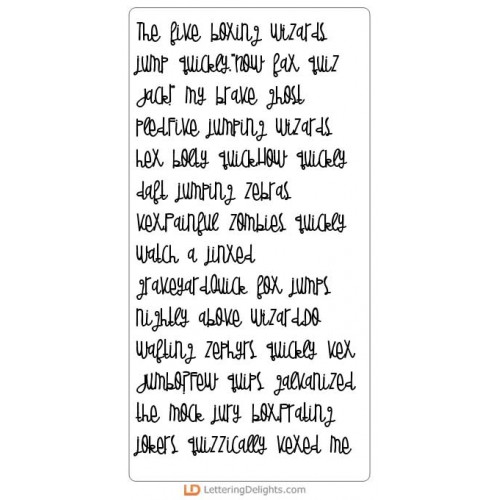 The five boxing wizards
jump quickly."now fax quiz
Jack!" my brave ghost
pledFive jumping wizards
hex bolty quickHow quickly
daft jumping zebras
vex.Painful zombies quickly
watch a jinxed
graveyard.Quick fox jumps
nightly above wizard.Do
wafting zephyrs quickly vex
Jumbo?Few quips galvanized
the mock jury box.Prating
jokers quizzically vexed me
LD LetteringDelights.com